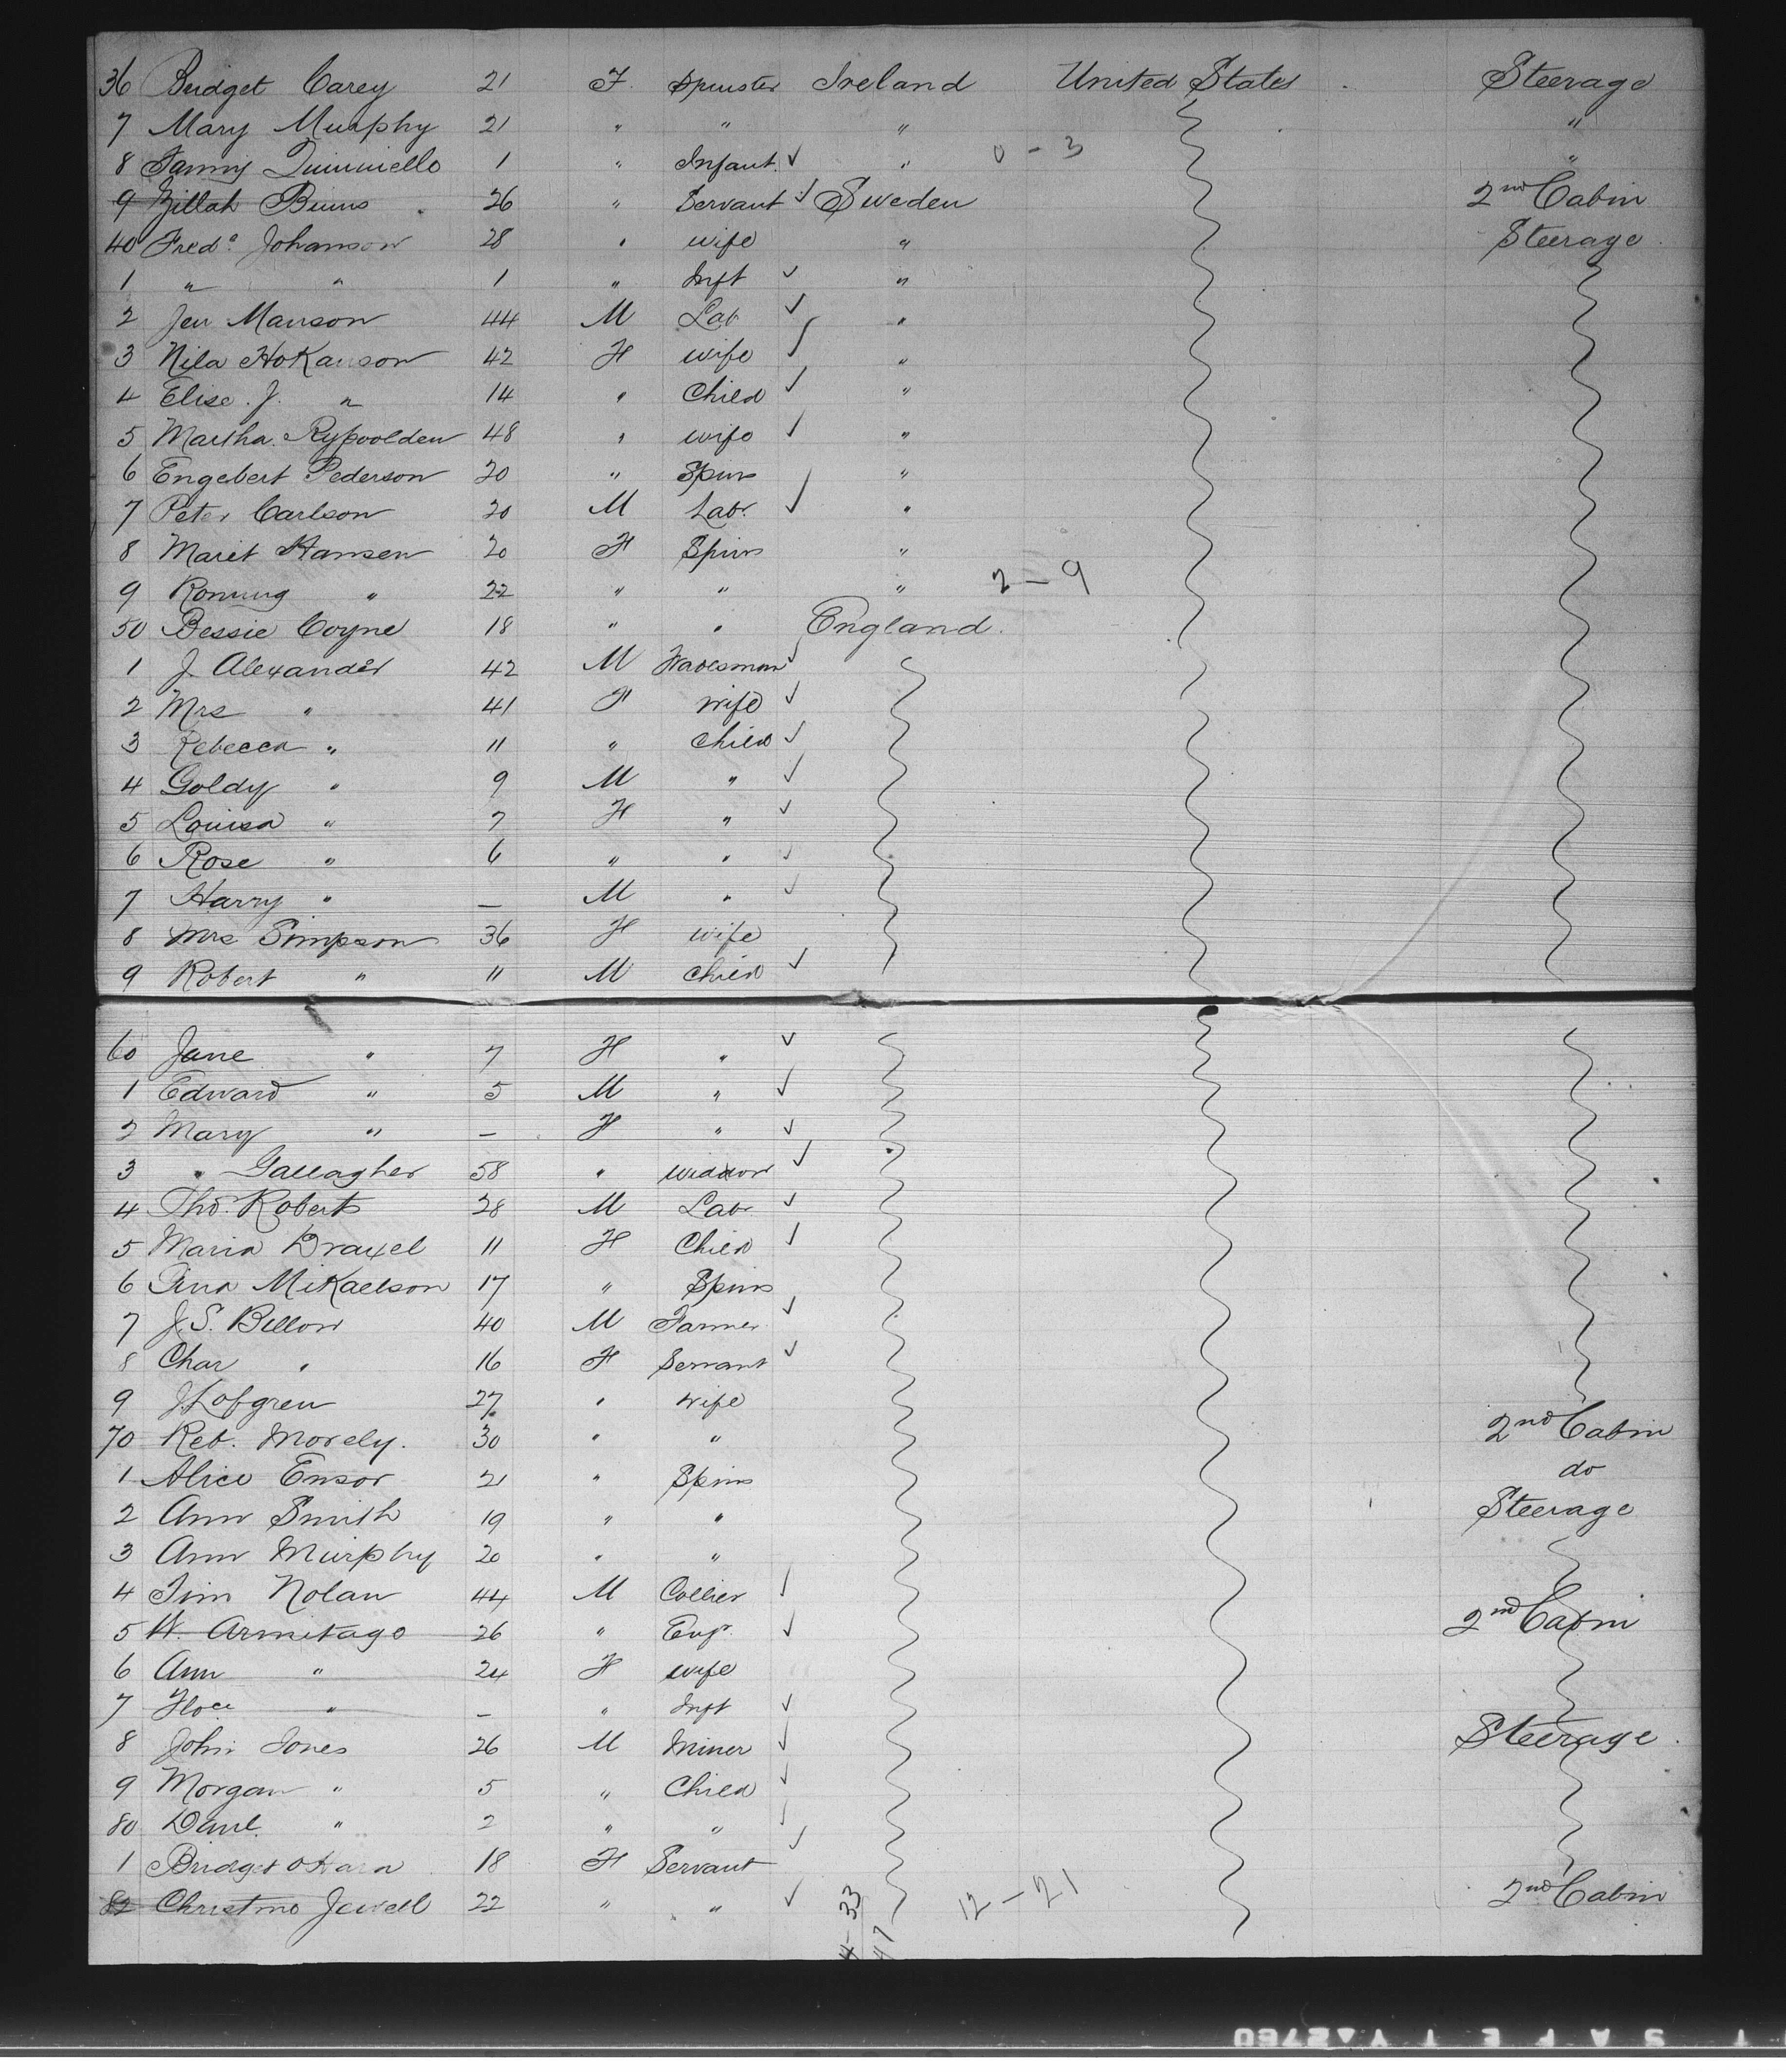 36 Bridget Carey 21 F. Spinster Ireland United States Steerage
7 Mary Murphy 21 " " " "
8 Fanny 1 " Infant " 0 - 3 "
9 Zillah Binns 26 " Servant Sweden 2nd Cabin
40 Freda Johanson 28 " wife " Steerage
1 " " 1 " Inft "
2 Jen Manson 44 M Lab "
3 Nila HoKanson 42 F wife "
4 Elise. J. " 14 " Child "
5 Martha 48 " wife "
6 Engebert Pederson 20 " Spins "
7 Peter Carlson 20 M Labr. "
8 Marit Hansen 20 F Spins "
9 Ronnug " 22 " " " 2 - 9
50 Bessie Coyne 18 " " England.
1 J. Alexander 42 M Tradesman
2 Mrs " 41 F wife
3 Rebecca " 11 " Child
4 Goldy " 9 M "
5 Louisa " 7 F "
6 Rose " 6 " "
7 Harry " — M "
8 Mrs Simpson 36 F wife
9 Robert " 11 M Child
60 Jane " 7 F "
1 Edward " 5 M "
2 Mary " — F "
3 " Gallagher 58 " widdow
4 Tho. Roberts 28 M Labr
5 Maria Draxel 11 F Child
6 Tina MiKaelson 17 " Spins
7 J.S. Bellow 40 M Farmer
8 Char " 16 F Servant
9 J Lofgren 27 " wife
70 Reb. Morely. 30 " " 2nd Cabin
1 Alice Ensor 21 " Spins do
2 Ann Smith 19 " " Steerage
3 Ann Murphy 20 " "
4 Tim Nolan 44 M Collier
5 W. Armitage 26 " Engr. 2nd Cabin
6 Ann " 24 F wife
7 " — " Inft
8 John Jones 26 M Miner Steerage
9 Morgan " 5 " Child
80 Danl. " 2 " "
1 Bridget OHara 18 F Servant
82 Jewell 22 " " 12 - 21 2nd Cabin
4-33
47
SAFETY 2760